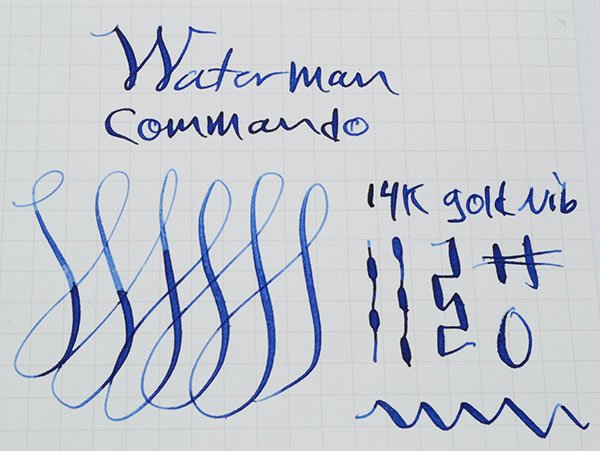 Waterman
Commando
14K gold nib